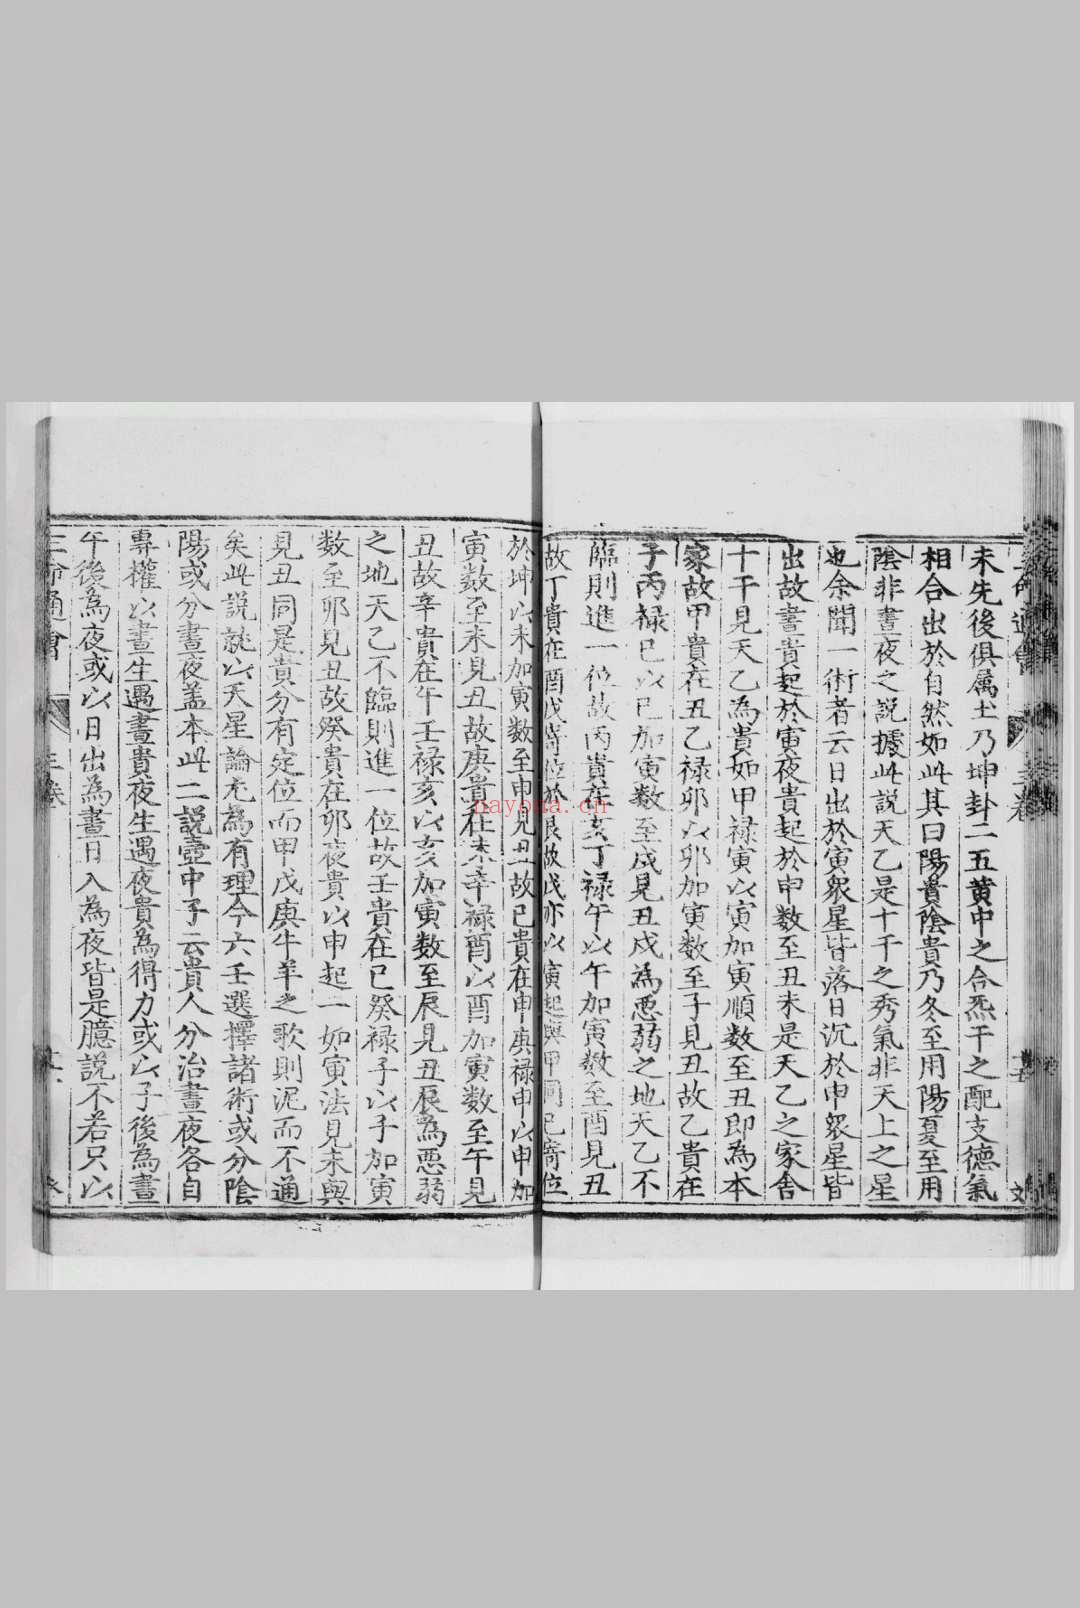 未先後俱属土乃坤卦二五黄中之合炁干之配支德氣
相合出於自然如此其曰陽貴陰貴乃冬至用陽夏至用
陰非晝夜之說據此說天乙是十干之秀氣非天上之星
也余聞一術者云日出於寅衆星皆落日沉於申衆星皆
出故晝貴起於寅夜貴起於申数至丑未是天乙之家舍
十干見天乙為貴如甲禄寅以寅加寅順数至丑即為本
家故甲貴在丑乙禄卯以卯加寅数至子見丑故乙貴在
子丙禄巳以巳加寅数至戌見丑戌為悪弱之地天乙不
臨則進一位故丙貴在亥丁禄午以午加寅数至酉見丑
故丁貴在酉戊寄位於艮故戊亦以寅起與甲同己寄位
於坤以未加寅数至申見丑故己貴在申庚禄申以申加
寅数至未見丑故庚貴在未辛禄酉以酉加寅数至午見
丑故辛貴在午壬禄亥以亥加寅数至辰見丑辰為悪弱
之地天乙不臨則進一位故壬貴在巳癸禄子以子加寅
数至卯見丑故癸貴在卯夜貴以申起一如寅法見未與
見丑同是貴分有定位而甲戊庚牛羊之歌則泥而不通
矣此說就以天星論尤為有理今六壬選擇諸術或分陰
陽或分晝夜盖本此二說壺中子云貴人分治晝夜各自
專權以晝生遇晝貴夜生遇夜貴為得力或以子後為晝
午後為夜或以日出為晝日入為夜皆是臆說不若只以
三命通會 三卷
nayona.cn